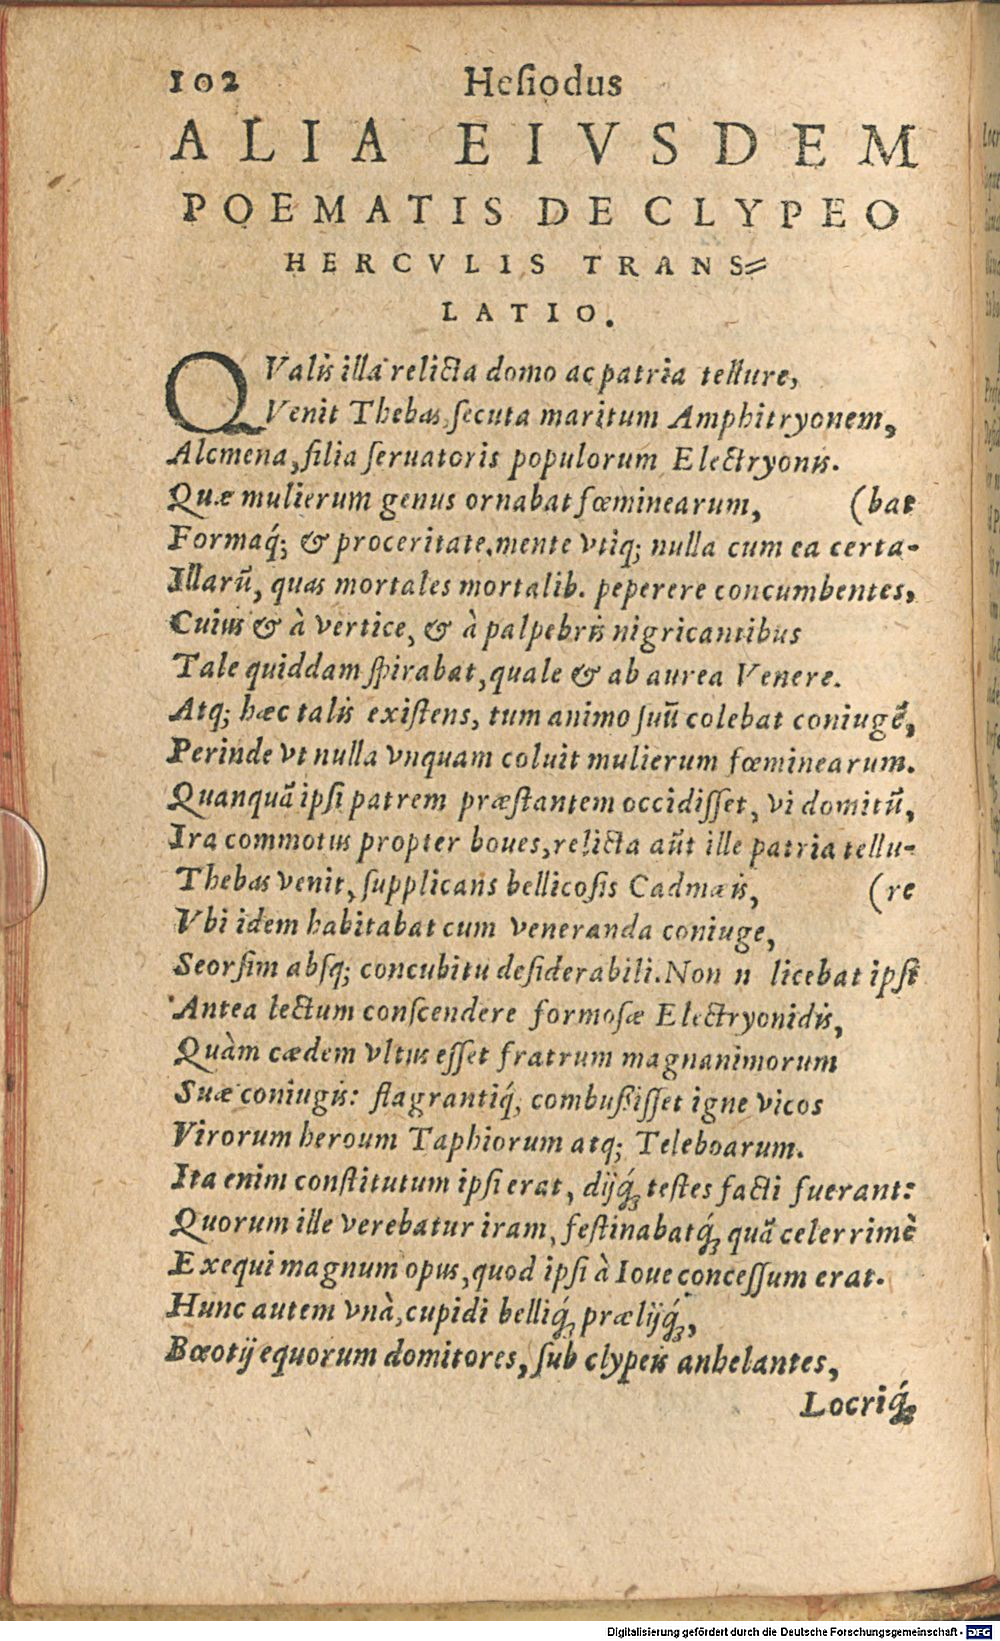 102 Hesiodus
ALIA EIVSDEM
POEMATIS DE CLYPEO
HERCVLIS TRANS=
LATIO.
QValis illa relicta domo ac patria tellure,
Venit Thebas, secuta maritum Amphitryonem,
Alcmena, filia seruatoris populorum Electryonis.
Quæ mulierum genus ornabat fœminearum, (bat
Formaq́; & proceritate, mente vtiq; nulla cum ea certa-
Illarũ, quas mortales mortalib. peperere concumbentes,
Cuius & à vertice, & à palpebris nigricantibus
Tale quiddam spirabat, quale & ab aurea Venere.
Atq; hæc talis existens, tum animo suũ colebat coniugẽ,
Perinde vt nulla vnquam coluit mulierum fœminearum.
Quanquã ipsi patrem præstantem occidisset, vi domitũ,
Ira commotus propter boues, relicta aũt ille patria tellu-
Thebas venit, supplicans bellicosis Cadmæis, (re
Vbi idem habitabat cum veneranda coniuge,
Seorsim absq; concubitu desiderabili. Non n licebat ipsi
Antea lectum conscendere formosæ Electryonidis,
Quàm cædem vltus esset fratrum magnanimorum
Suæ coniugis: flagrantiq́; combussisset igne vicos
Virorum heroum Taphiorum atq; Teleboarum.
Ita enim constitutum ipsi erat, dijq́; testes facti fuerant:
Quorum ille verebatur iram, festinabatq́; quã celerrimè
Exequi magnum opus, quod ipsi à Ioue concessum erat.
Hunc autem vnà, cupidi belliq́; prælijq́;,
Bœotij equorum domitores, sub clypeis anhelantes,
Locriq́;
Digitalisierung gefördert durch die Deutsche Forschungsgemeinschaft - DFG